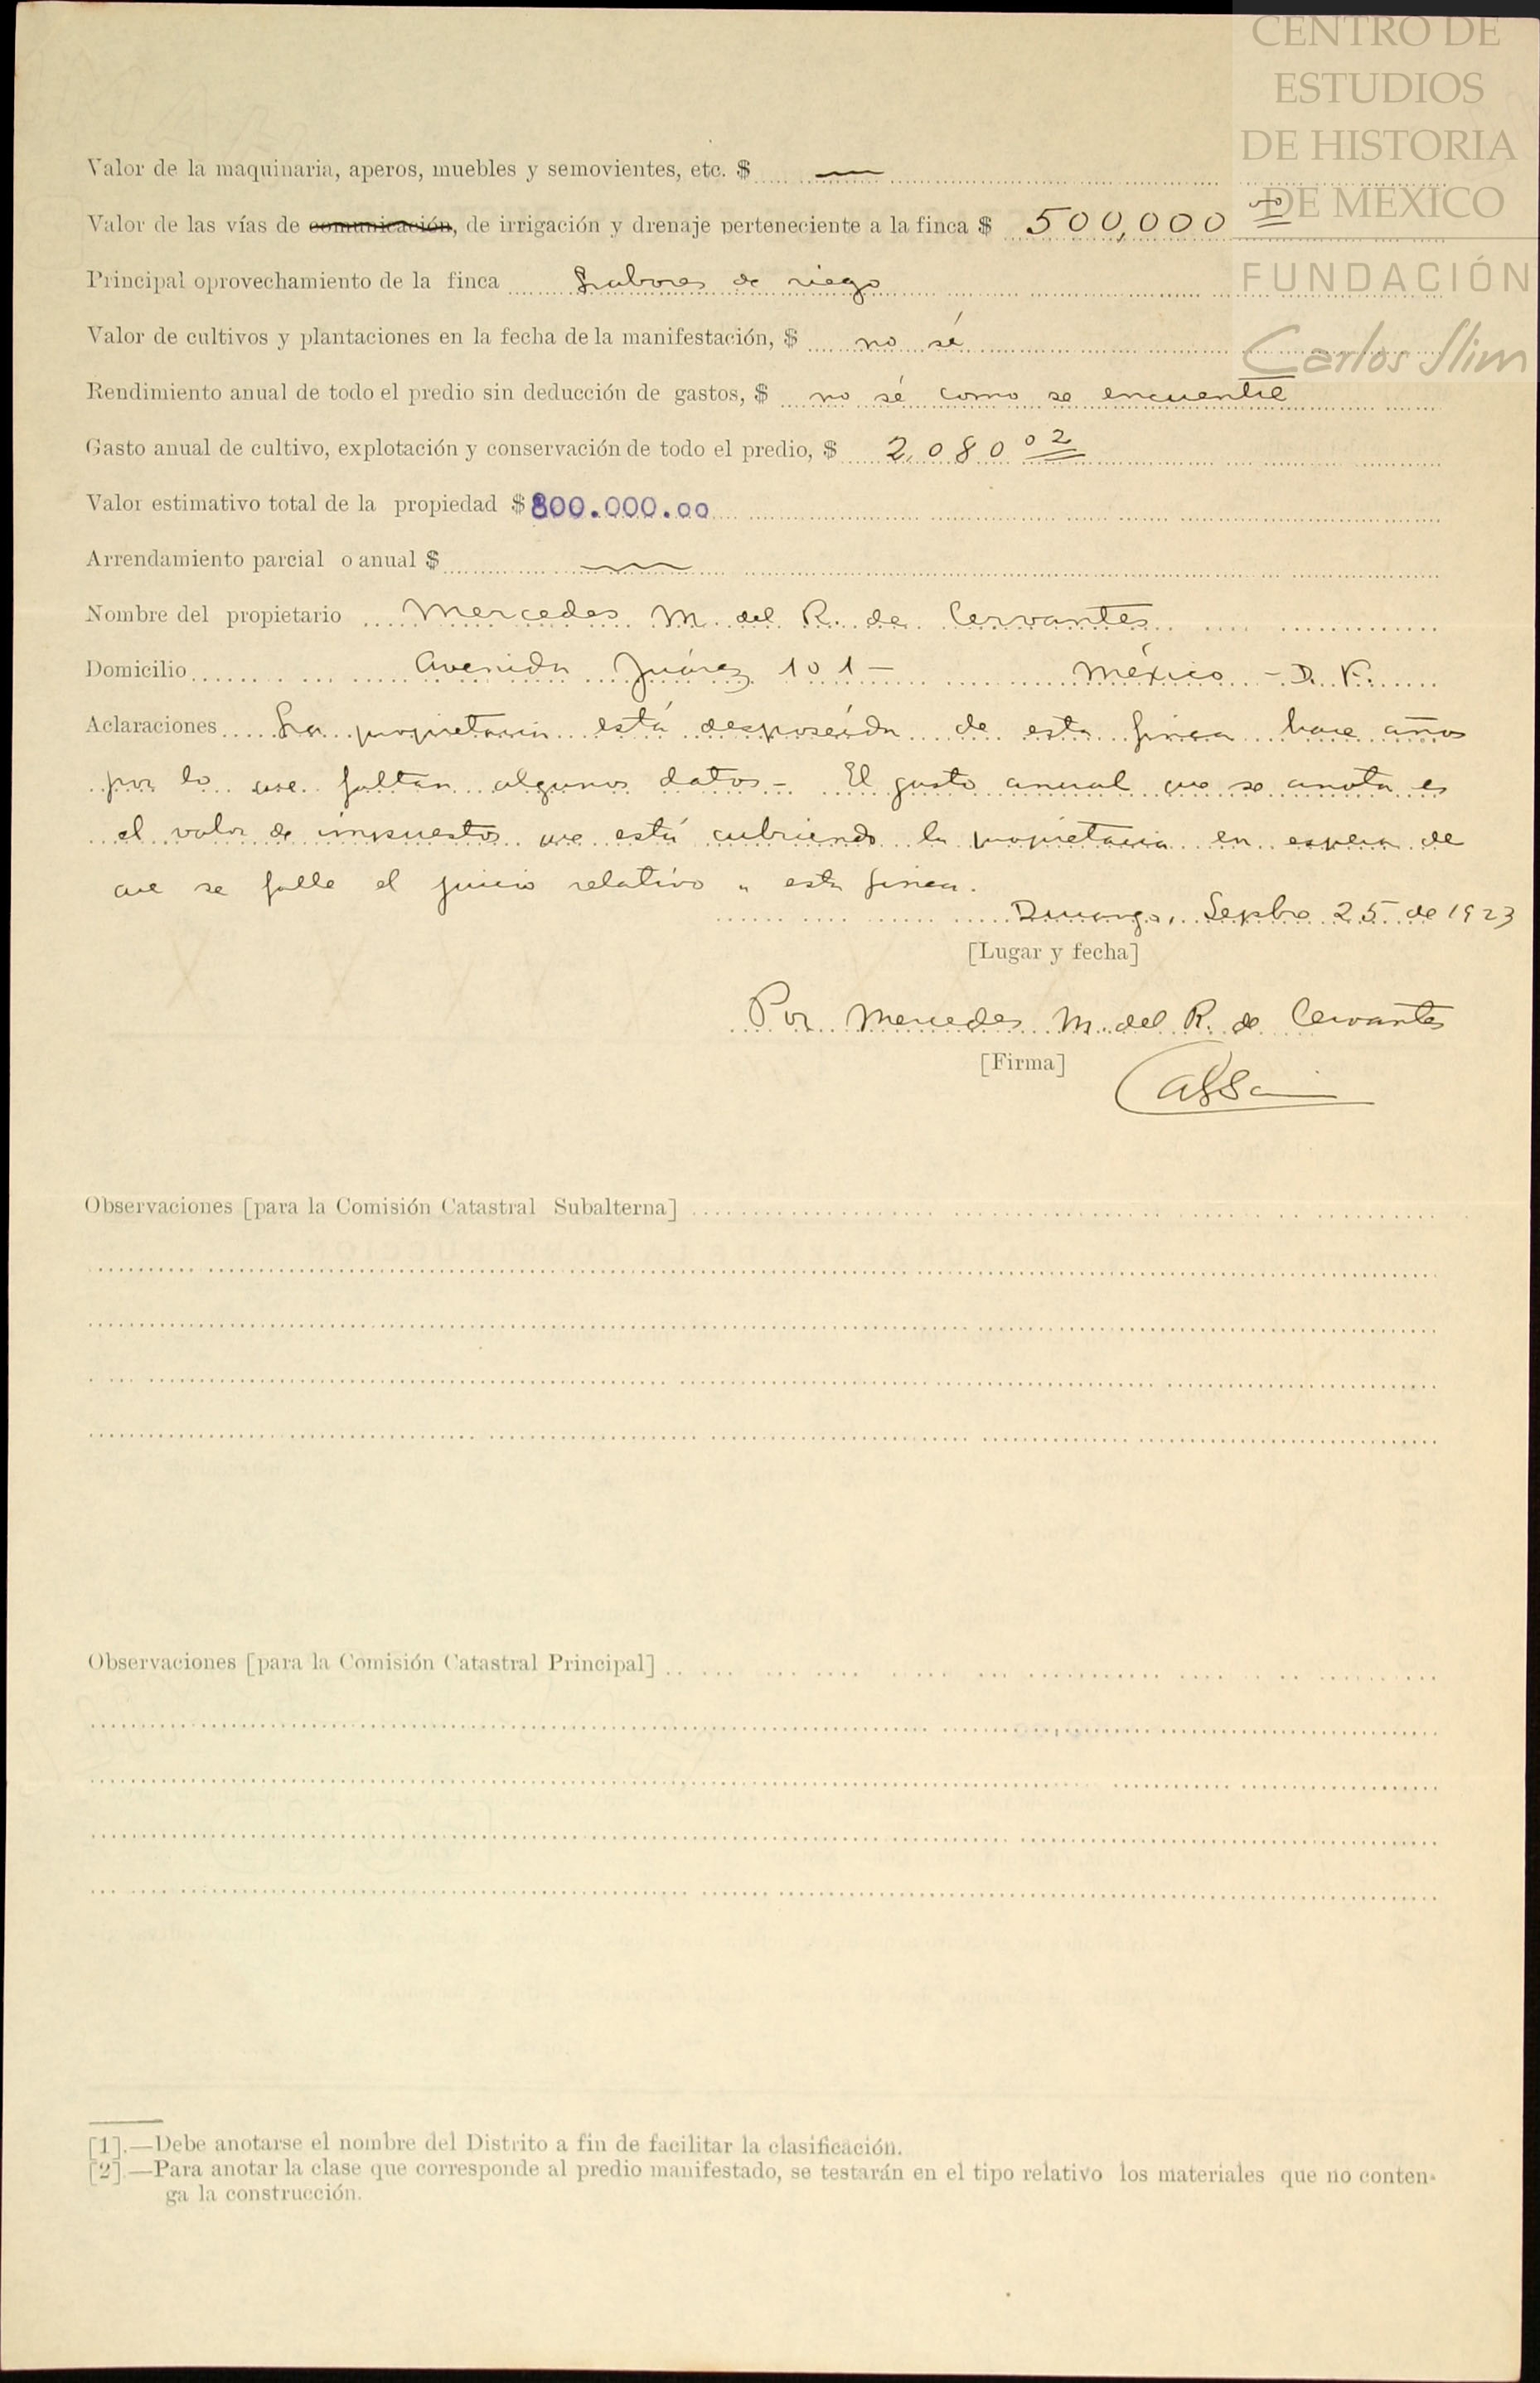 CENTRO DE
ESTUDIOS
DE HISTORIA
DE MÉXICO
FUNDACIÓN
Carlos Slim
Valor de la maquinaria, aperos, muebles y semovientes, etc. $ —
Valor de las vías de comunicación, de irrigación y drenaje perteneciente a la finca $ 500,000
Principal oprovechamiento de la finca Labores de riego
Valor de cultivos y plantaciones en la fecha de la manifestación, $ no sé
Rendimiento anual de todo el predio sin deducción de gastos, $ no sé como se encuentre
Gasto anual de cultivo, explotación y conservación de todo el predio, $ 2,080 02
Valor estimativo total de la propiedad $ 800.000.00
Arrendamiento parcial o anual $ —
Nombre del propietario Mercedes M. del R. de Cervantes
Domicilio Avenida Juárez 101 — México - D. F.
Aclaraciones La propietaria está desposeída de esta finca hace años
por lo que faltan algunos datos - El gasto anual que se anota es
el valor de impuestos que está cubriendo la propietaria en espera de
que se falle el juicio relativo a esta finca.
Durango, Sepbre 25 de 1923
[Lugar y fecha]
Por Mercedes M. del R. de Cervantes
[Firma]
Observaciones [para la Comisión Catastral Subalterna]
Observaciones [para la Comisión Catastral Principal]
[1].—Debe anotarse el nombre del Distrito a fin de facilitar la clasificación.
[2].—Para anotar la clase que corresponde al predio manifestado, se testarán en el tipo relativo los materiales que no conten-
ga la construcción.